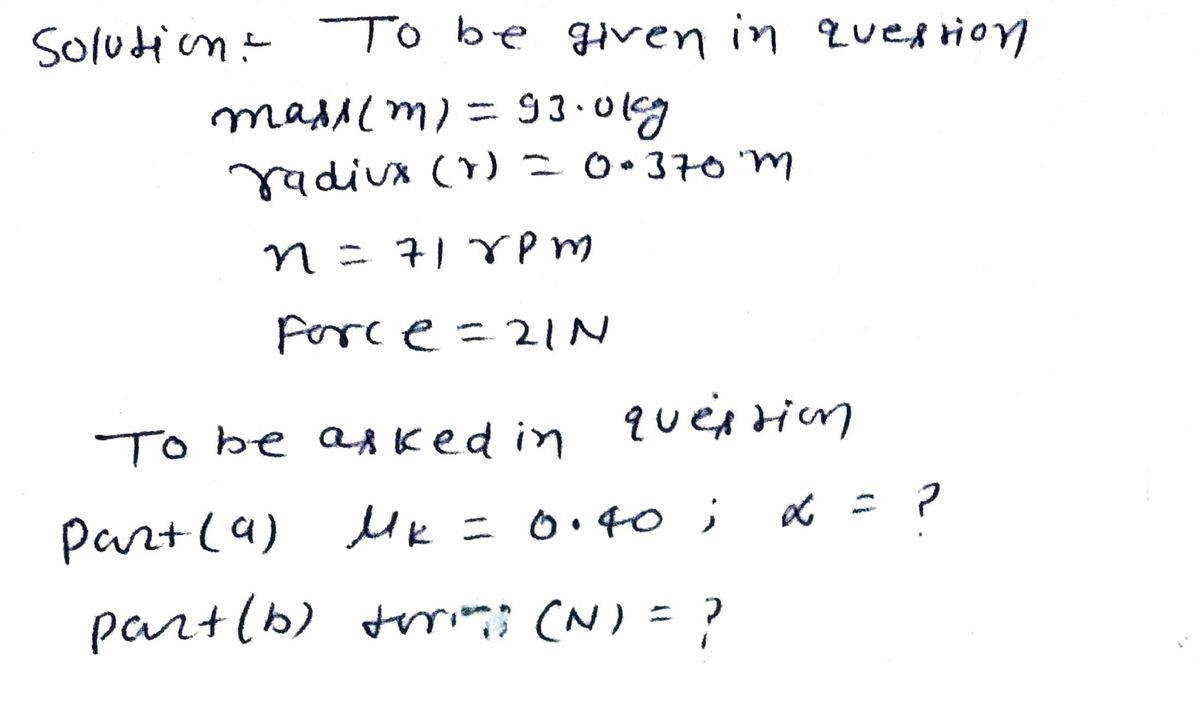 Solution:- To be given in question
mass(m) = 93.0kg
radius (r) = 0.370 m
n = 71 rpm
Force = 21N
To be asked in question
Part(a) μk = 0.40 ; α = ?
part(b) (N) = ?